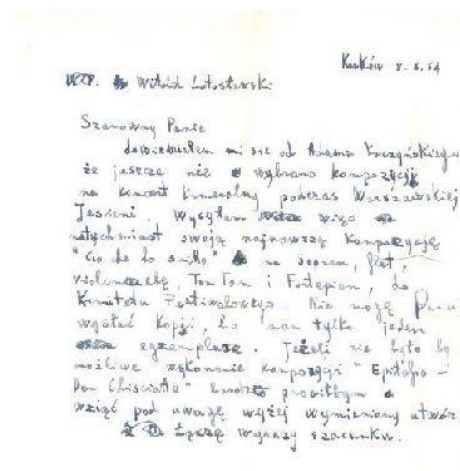 Kraków 8.6.64
WP. Witold Lutosławski
Szanowny Panie
dowiedziałem mi się od Adama Kaczyńskiego
że jeszcze nie wybrano kompozycji
na koncert kameralny podczas Warszawskiej
Jesieni. Wysyłam więc
natychmiast swoją najnowszą kompozycję
na sopran, flet,
violonczelę, Tam Tam i Fortepian, do
Komitetu Festiwalowego. Nie mogę Panu
wysłać kopii, bo mam tylko jeden
egzemplarz. Jeżeli nie było by
możliwe wykonanie kompozycji "Epitafio –
Don Chisciotte" prosiłbym o
wziąć pod uwagę wyżej wymieniony utwór
Łączę wyrazy szacunku.